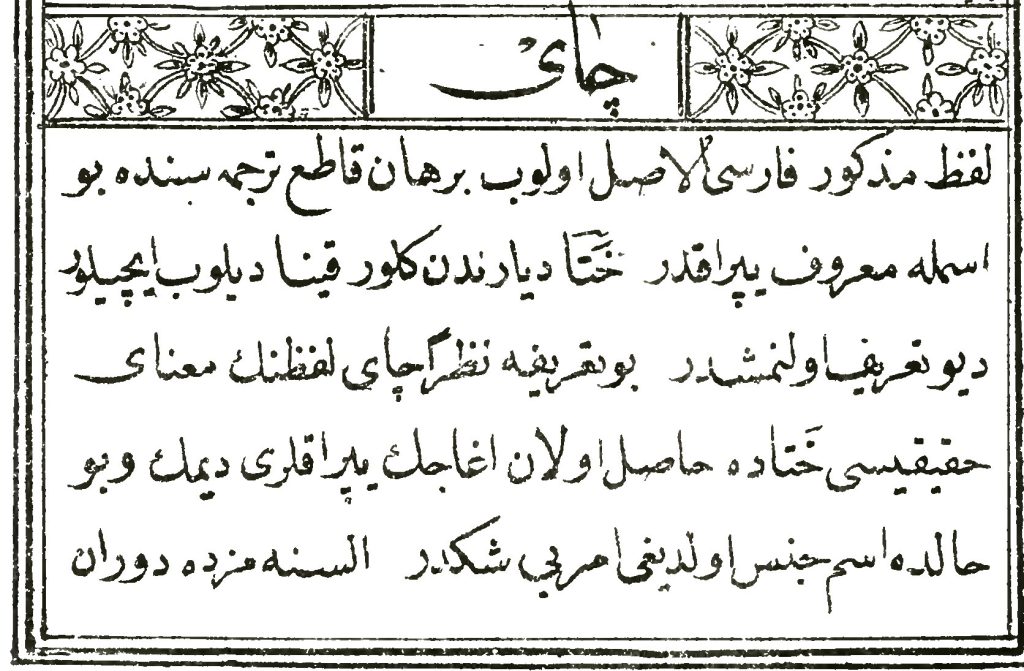 چای
لفظ مذكور فارسی الاصل اولوب برهان قاطع ترجمه سنده بو
اسمله معروف یپراقدر خَتَا دیارندن كلور قینا دیلوب ایچیلور
دیو تعریف اولنمشدر بو تعریفه نظراً چای لفظنك معنای
حقیقیسی خَتاده حاصل اولان اغاجك یپراقلری دیمك و بو
حالده اسم جنس اولدیغی امر بی شكدر السنه مزده دوران